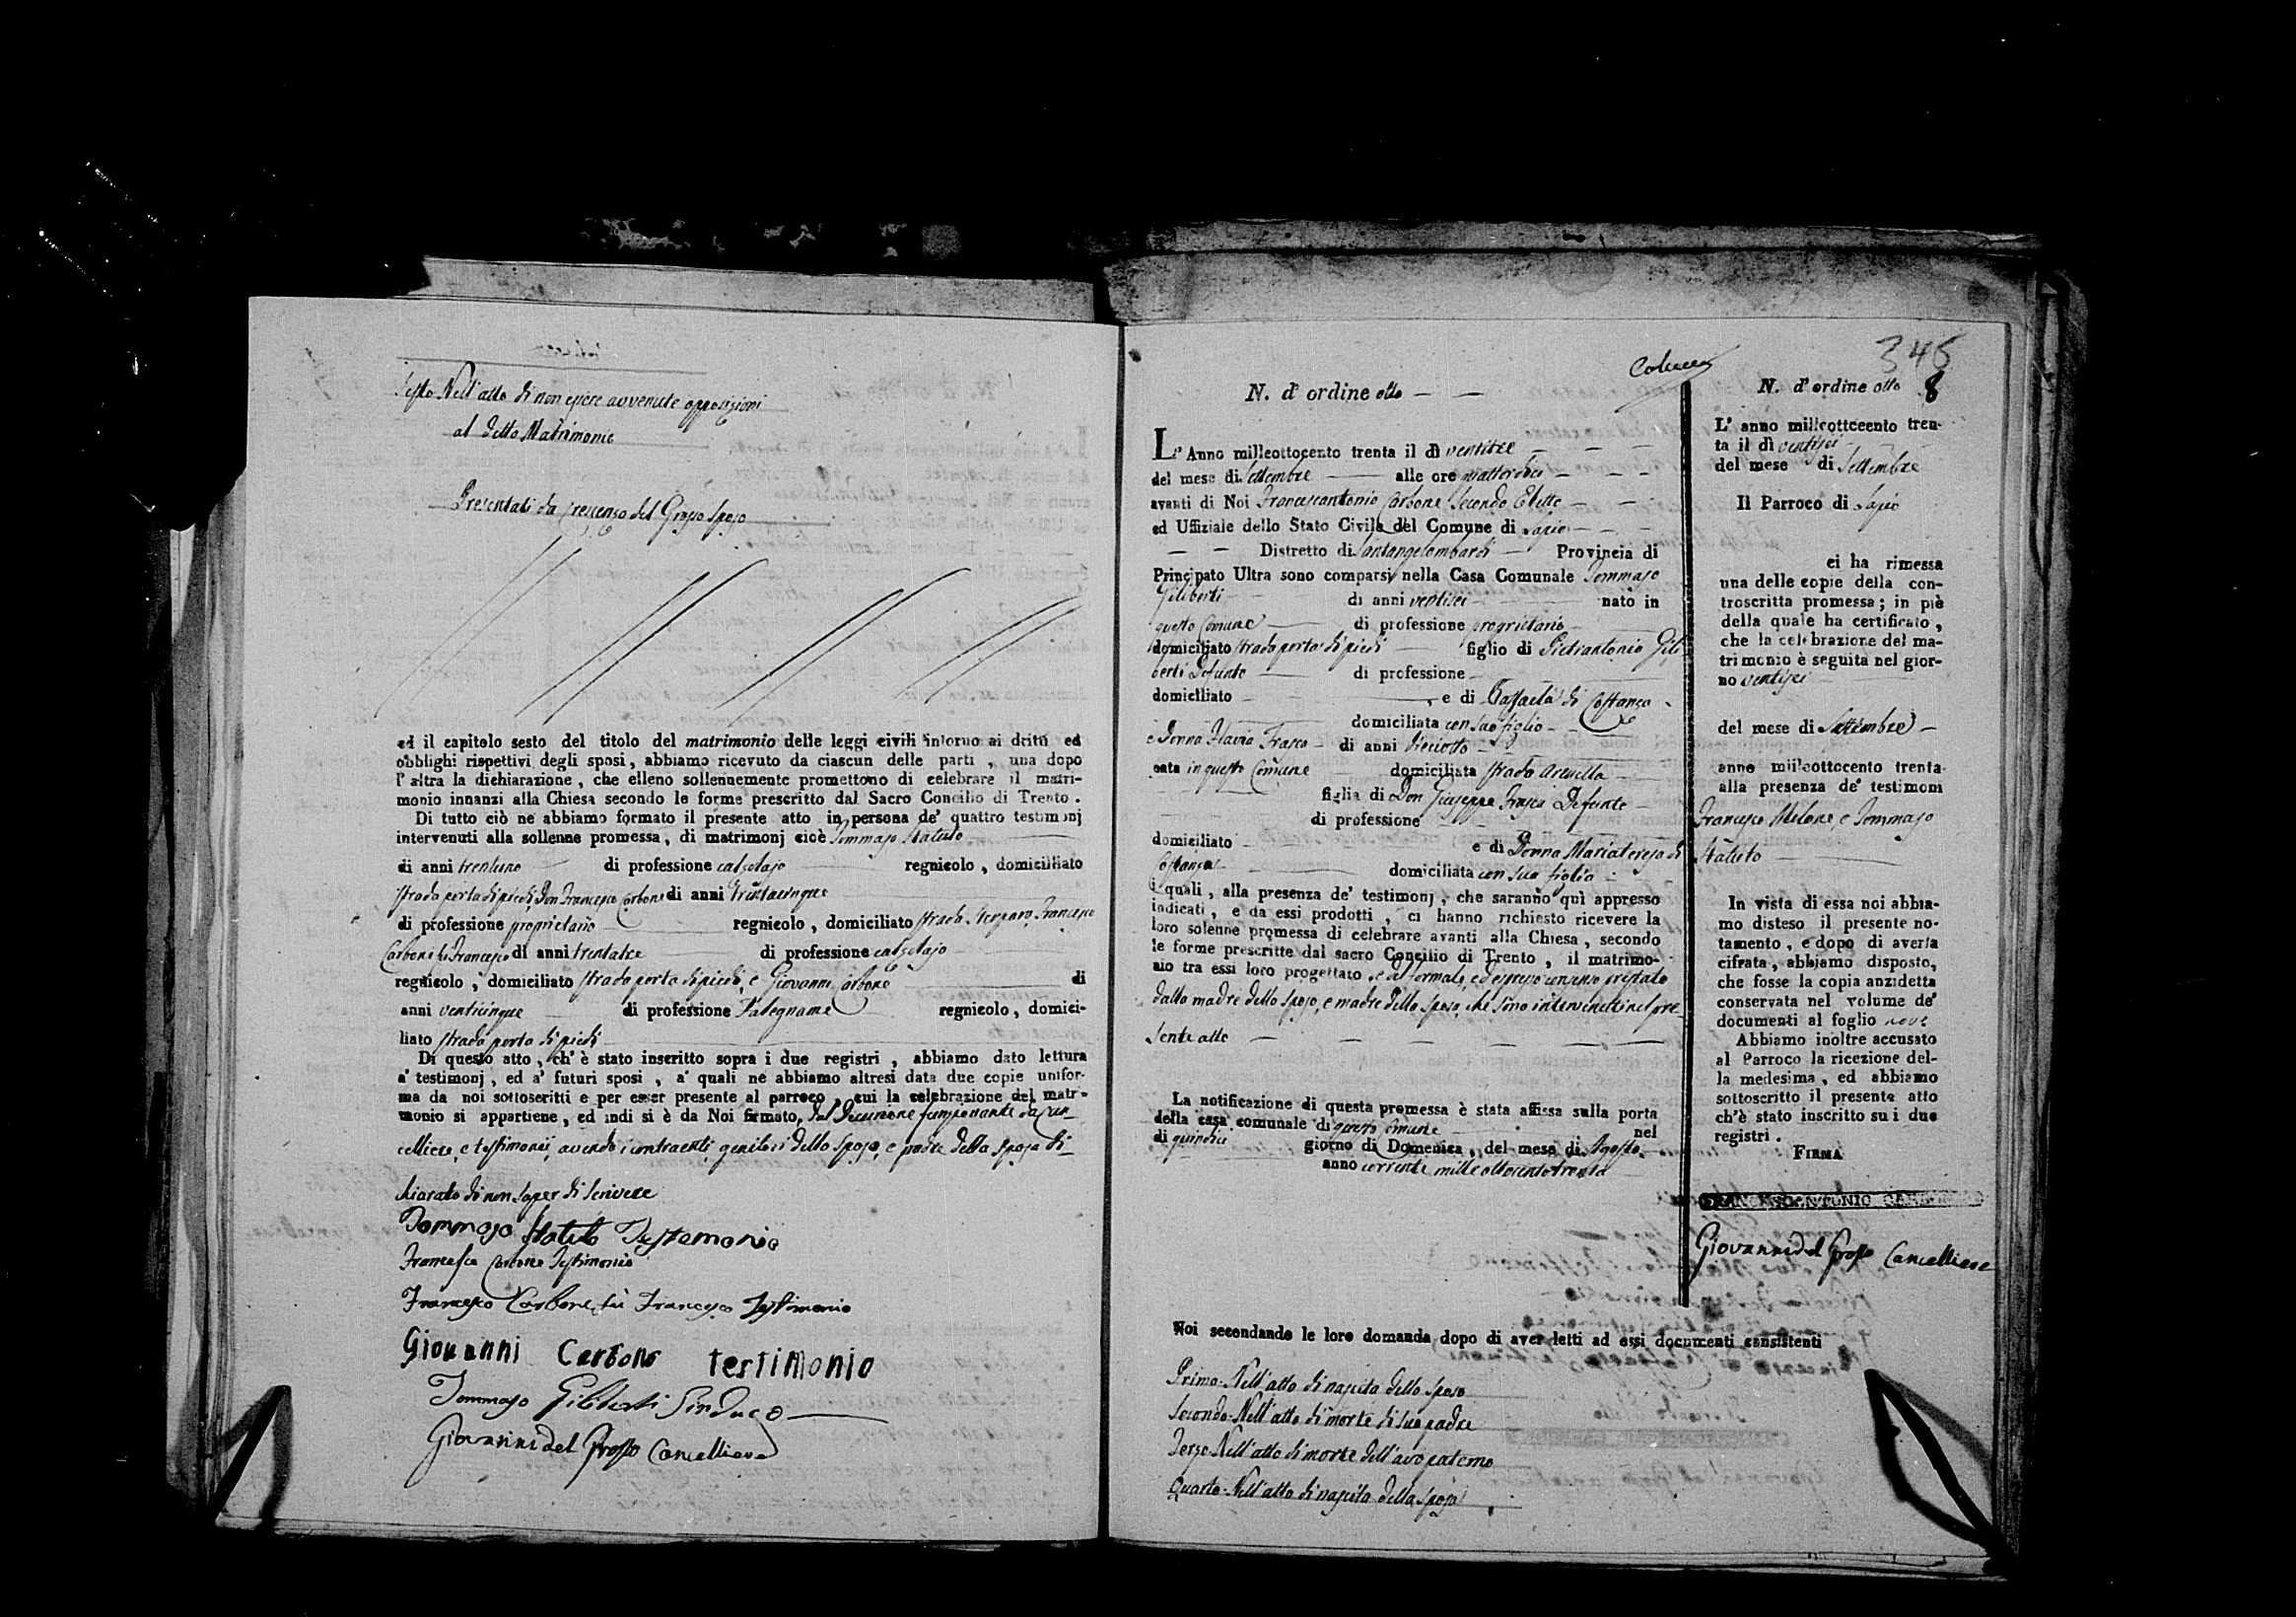 Sesto Nell'atto di non essere avvenute opposizioni
al detto Matrimonio
Presentati da Crescenzo del Grosso sposo
ed il capitolo sesto del titolo del matrimonio delle leggi civili intorno ai dritti ed
obblighi rispettivi degli sposi, abbiamo ricevuto da ciascun delle parti, una dopo
l'altra la dichiarazione, che elleno sollennemente promettono di celebrare il matri-
monio innanzi alla Chiesa secondo le forme prescritto dal Sacro Concilio di Trento.
Di tutto ciò ne abbiamo formato il presente atto in persona de' quattro testimonj
intervenuti alla sollenne promessa, di matrimonj cioè Tommaso Statuto
di anni trentuno di professione calzolajo regnicolo, domiciliato
strada porta di piedi, Don Francesco Carbone di anni trentacinque
di professione proprietario regnicolo, domiciliato strada Francesco
Carbone fu Francesco di anni trentatre di professione calzolajo
regnicolo, domiciliato strada porta di piedi, e Giovanni Carbone di
anni venticinque di professione Falegname regnicolo, domici-
liato strada porta di piedi
Di questo atto, ch'è stato inscritto sopra i due registri, abbiamo dato lettura
a' testimonj, ed a' futuri sposi, a' quali ne abbiamo altresì data due copie unifor-
ma da noi sottoscritti e per esser presente al parroco, cui la celebrazione del matr-
monio si appartiene, ed indi si è da Noi firmato, dal Decurione funzionante da can
celliere, e testimonii, avendo i contraenti, genitori dello sposo, e madre della sposa di-
chiarato di non saper di scrivere
Tommaso Statuto Testemonio
Francesco Carbone Testimonio
Francesco Carbone, fu Francesco Testimonio
Giovanni Carbone testimonio
Tommaso Giliberti Sindaco
Giovanni del Grosso Cancelliere
346
N. d'ordine otto
L'Anno milleottocento trenta il dì ventitre
del mese di Settembre alle ore quattordici
avanti di Noi Francescantonio Carbone Secondo Eletto
ed Uffiziale dello Stato Civile del Comune di Lapio
Distretto di Santangelombardi Provincia di
Principato Ultra sono comparsi nella Casa Comunale Tommaso
Giliberti di anni ventisei nato in
questo Comune di professione proprietario
domiciliato strada porta di piedi figlio di Pietrantonio Gili-
berti Defunto di professione
domiciliato e di Raffaela di Costanzo
domiciliata con suo figlio
e Donna Flavia Frasca di anni dieciotto
nata in questo Comune domiciliata strada Arenella
figlia di Don Giuseppe Frasca Defunto
di professione
domiciliato e di Donna Mariateresa di
Costanza domiciliata con sua figlia
I quali, alla presenza de' testimonj, che saranno quì appresso
indicati, e da essi prodotti, ci hanno richiesto ricevere la
loro solenne promessa di celebrare avanti alla Chiesa, secondo
le forme prescritte dal sacro Concilio di Trento, il matrimo-
nio tra essi loro progettato, e dal formale, ed espresso consenso prestato
dalla madre dello sposo, e madre della sposa, che sono intervenute nel pre
sente atto
La notificazione di questa promessa è stata affissa sulla porta
della casa comunale di questo Comune nel
di quindici giorno di Domenica, del mese di Agosto
anno corrente mille ottocentotrenta
Noi secondando le loro domanda dopo di aver letti ad essi documenti consistenti
Primo. Nell'atto di nascita dello sposo
Secondo. Nell'atto di morte di suo padre
Terzo. Nell'atto di morte dell'avo paterno
Quarto. Nell'atto di nascita della sposa
N. d'ordine otto 8
L'anno millcottceento tren-
ta il dì ventisei
del mese di Settembre
Il Parroco di Lapio
ci ha rimessa
una delle copie della con-
troscritta promessa; in piè
della quale ha certificato,
che la celebrazione del ma-
trimonio è seguita nel gior-
no ventisei
del mese di Settembre
anno milleottocento trenta
alla presenza de' testimoni
Francesco Melone, e Tommaso
Statuto
In vista di essa noi abbia-
mo disteso il presente no-
tamento, e dopo di averla
cifrata, abbiamo disposto,
che fosse la copia anzidetta
conservata nel volume de'
documenti al foglio nove
Abbiamo inoltre accusato
al Parroco la ricezione del-
la medesima, ed abbiamo
sottoscritto il presente atto
ch'è stato inscritto su i due
registri.
FIRMA
FRANCESCOANTONIO
Giovanni del Grosso Cancelliere